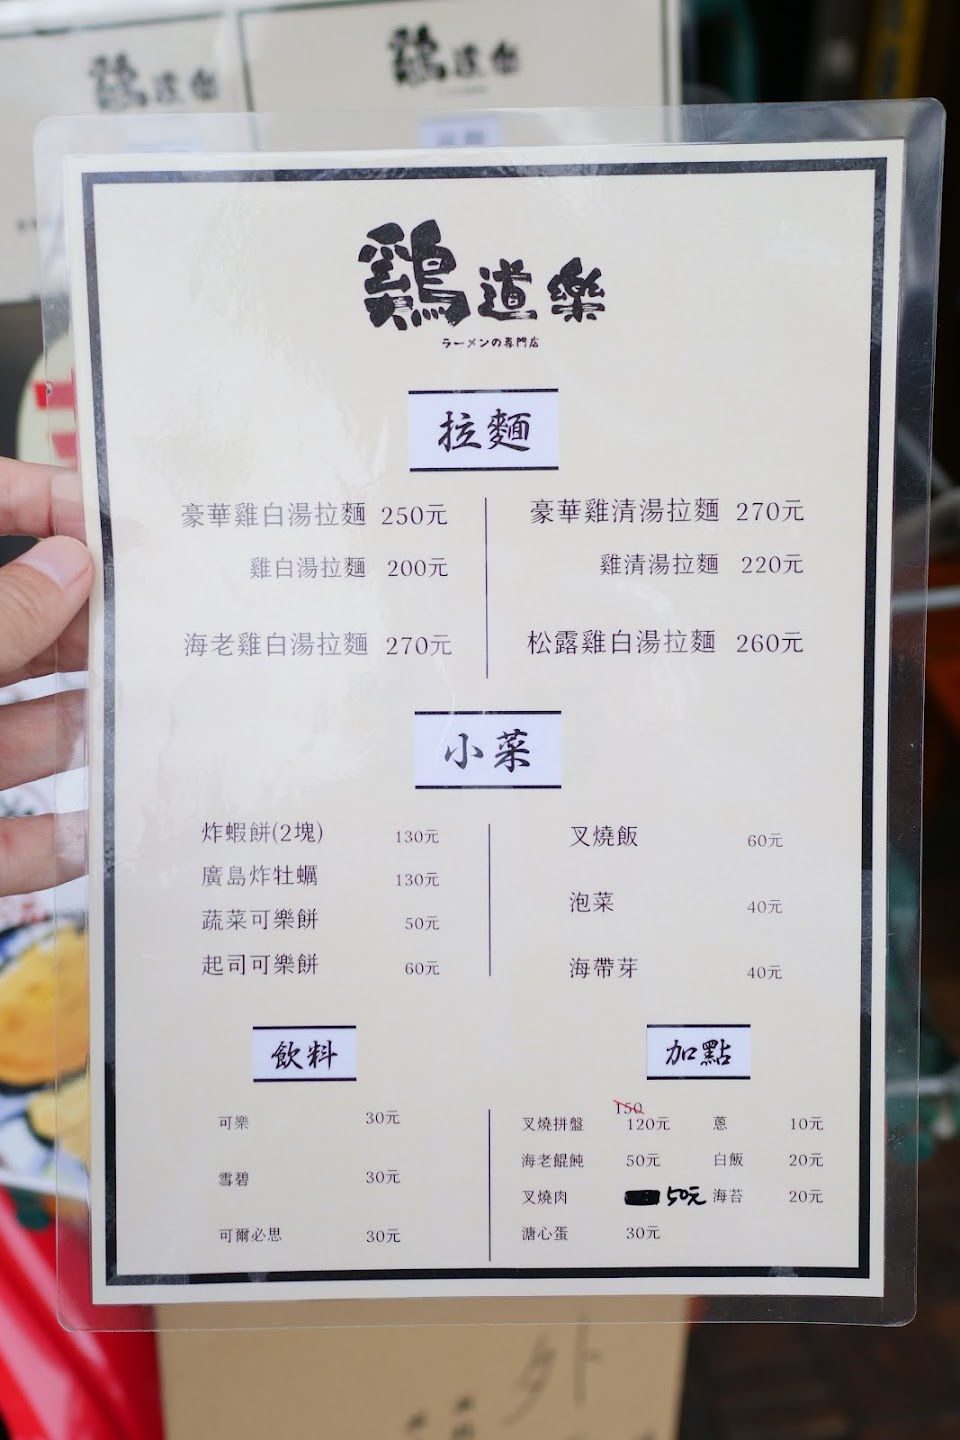 鷄道樂
鷄道樂
鷄道樂
ラーメンの専門店
拉麵
豪華雞白湯拉麵 250元
雞白湯拉麵 200元
海老雞白湯拉麵 270元
豪華雞清湯拉麵 270元
雞清湯拉麵 220元
松露雞白湯拉麵 260元
小菜
炸蝦餅(2塊) 130元
廣島炸牡蠣 130元
蔬菜可樂餅 50元
起司可樂餅 60元
叉燒飯 60元
泡菜 40元
海帶芽 40元
飲料
可樂 30元
雪碧 30元
可爾必思 30元
加點
150
叉燒拼盤 120元
海老餛飩 50元
叉燒肉 50元
溏心蛋 30元
蔥 10元
白飯 20元
海苔 20元
外